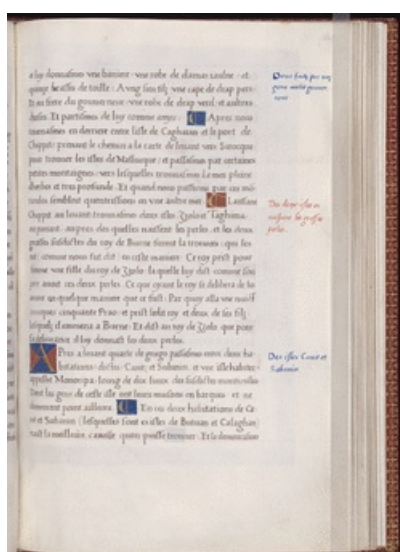 a luy donnasmes vne banniere · vne robe de damas Iaulne · et
quinze brasses de toille · A vng sien filz vne cape de drap pers ·
Et au filz du gouuerneur vne robe de drap verd : et autres
choses. Et partismes de luy comme amys. C Apres nous
tournasmes en derriere entre lisle de Caghaian et le port de
Chippit : prenant le chemin a la carte de leuant vers Siroceque
pour trouuer les isles de Malucque : et passasmes par certaines
petites montaignes · vers lesquelles trouuasmes la mer pleine
dherbes et tres profonde. Et quand nous passions par ces
sembloit quentrissions en vne autre mer. C Laissant
Chippit au leuant trouuasmes deux isles Zzolo et Taghima ·
au ponant · aupres des quelles naissent les perles · et les deux
grosses susdictes du roy de Burne furent la trouuees · qui les
eut comme nous fut dit en ceste maniere. Ce roy prist pour
femme vne fille du roy de Zzolo · la quelle luy dist comme son
pere auoit ces deux perles. Ce que oyant le roy se delibera de les
auoir en quelque maniere que ce fust. Par quoy alla vne nuict
auecques cinquante Prao · et prist ledit roy et deux de ses filz ·
lesquelz il emmena a Burne. Et dist au roy de Zzolo que pour
se deliurer il luy donnast les deux perles.
APres a leuant quarte de grecque passasmes entre deux ha-
bitations · dictes · Cauit · et Subanin · et vne isle habitee ·
appellee Monoripa · loing de dix lieux des
Dont les gens de ceste isle ont leurs maisons en barques · et ne
demeurent point ailleurs. C En ces deux habitations de Ca-
uit et Subanin (lesquelles sont es isles de Butuan et Calaghan)
naist la meilleure canelle quon puisse trouuer. Et si demourions
Deux
Des deux isles ou
naissent les grosses
perles.
Des isles Cauit et
Subanin